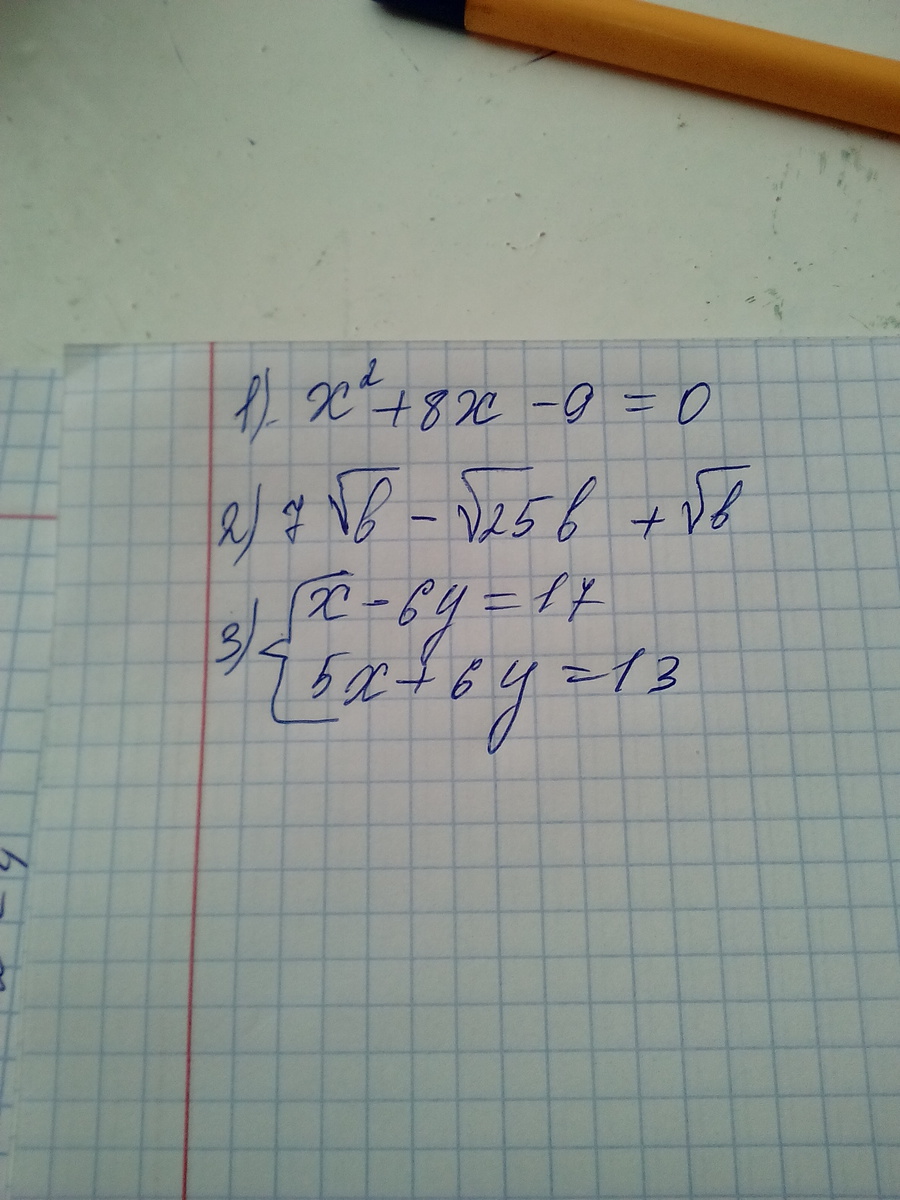 1). x² + 8x - 9 = 0
2) 7√b - √25b + √b
3) { x - 6y = 17
5x + 6y = 13